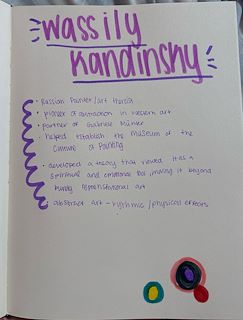 Wassily
Kandinsky
• Russian Painter/art theorist
• pioneer of abstraction in western art
• partner of Gabriele Münter
• helped establish the Museum of the
Culture of Painting
• developed a theory that viewed as a
spiritual and emotional tool, moving it beyond
purely representational art
• abstract art - rhythmic/physical effects